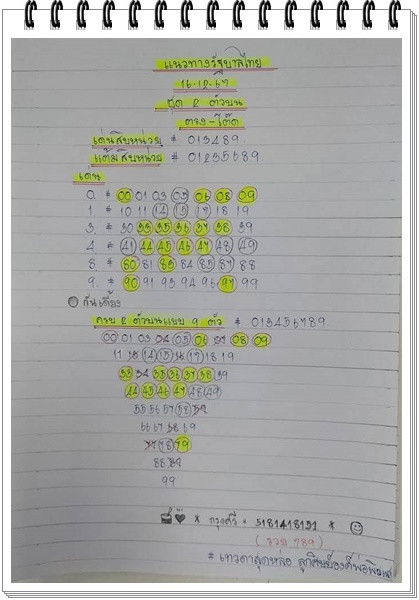 แนวทางรัฐบาลไทย
16-12-67
ชุด 2 ตัวบน
ตรง-โต๊ด
เด่นสิบหน่วย # 013489.
แต้มสิบหน่วย # 01235689.
เด่น
0. # 00 01 03 05 06 08 09
1 # 10 11 14 15 17 18 19
3. # 30 33 35 36 37 38 39
4 # 41 44 45 46 47 48 49
8. # 80 81 83 84 85 87 88
9. # 90 91 93 94 96 97 99
กันเหลื่อง
ครบ 2 ตัวบนแบบ 9 ตัว # 013456789
00 01 03 04 05 06 07 08 09
11 13 14 15 16 17 18 19
33 34 35 36 37 38 39
44 45 46 47 48 49
55 56 57 58 59
66 67 68 69
77 78 79
88 89
99
* กรุงศรี # 5181418191 *
(งวด 789)
# เทวดาสุดหล่อ ลูกศิษย์องค์พ่อพิฆเนศ